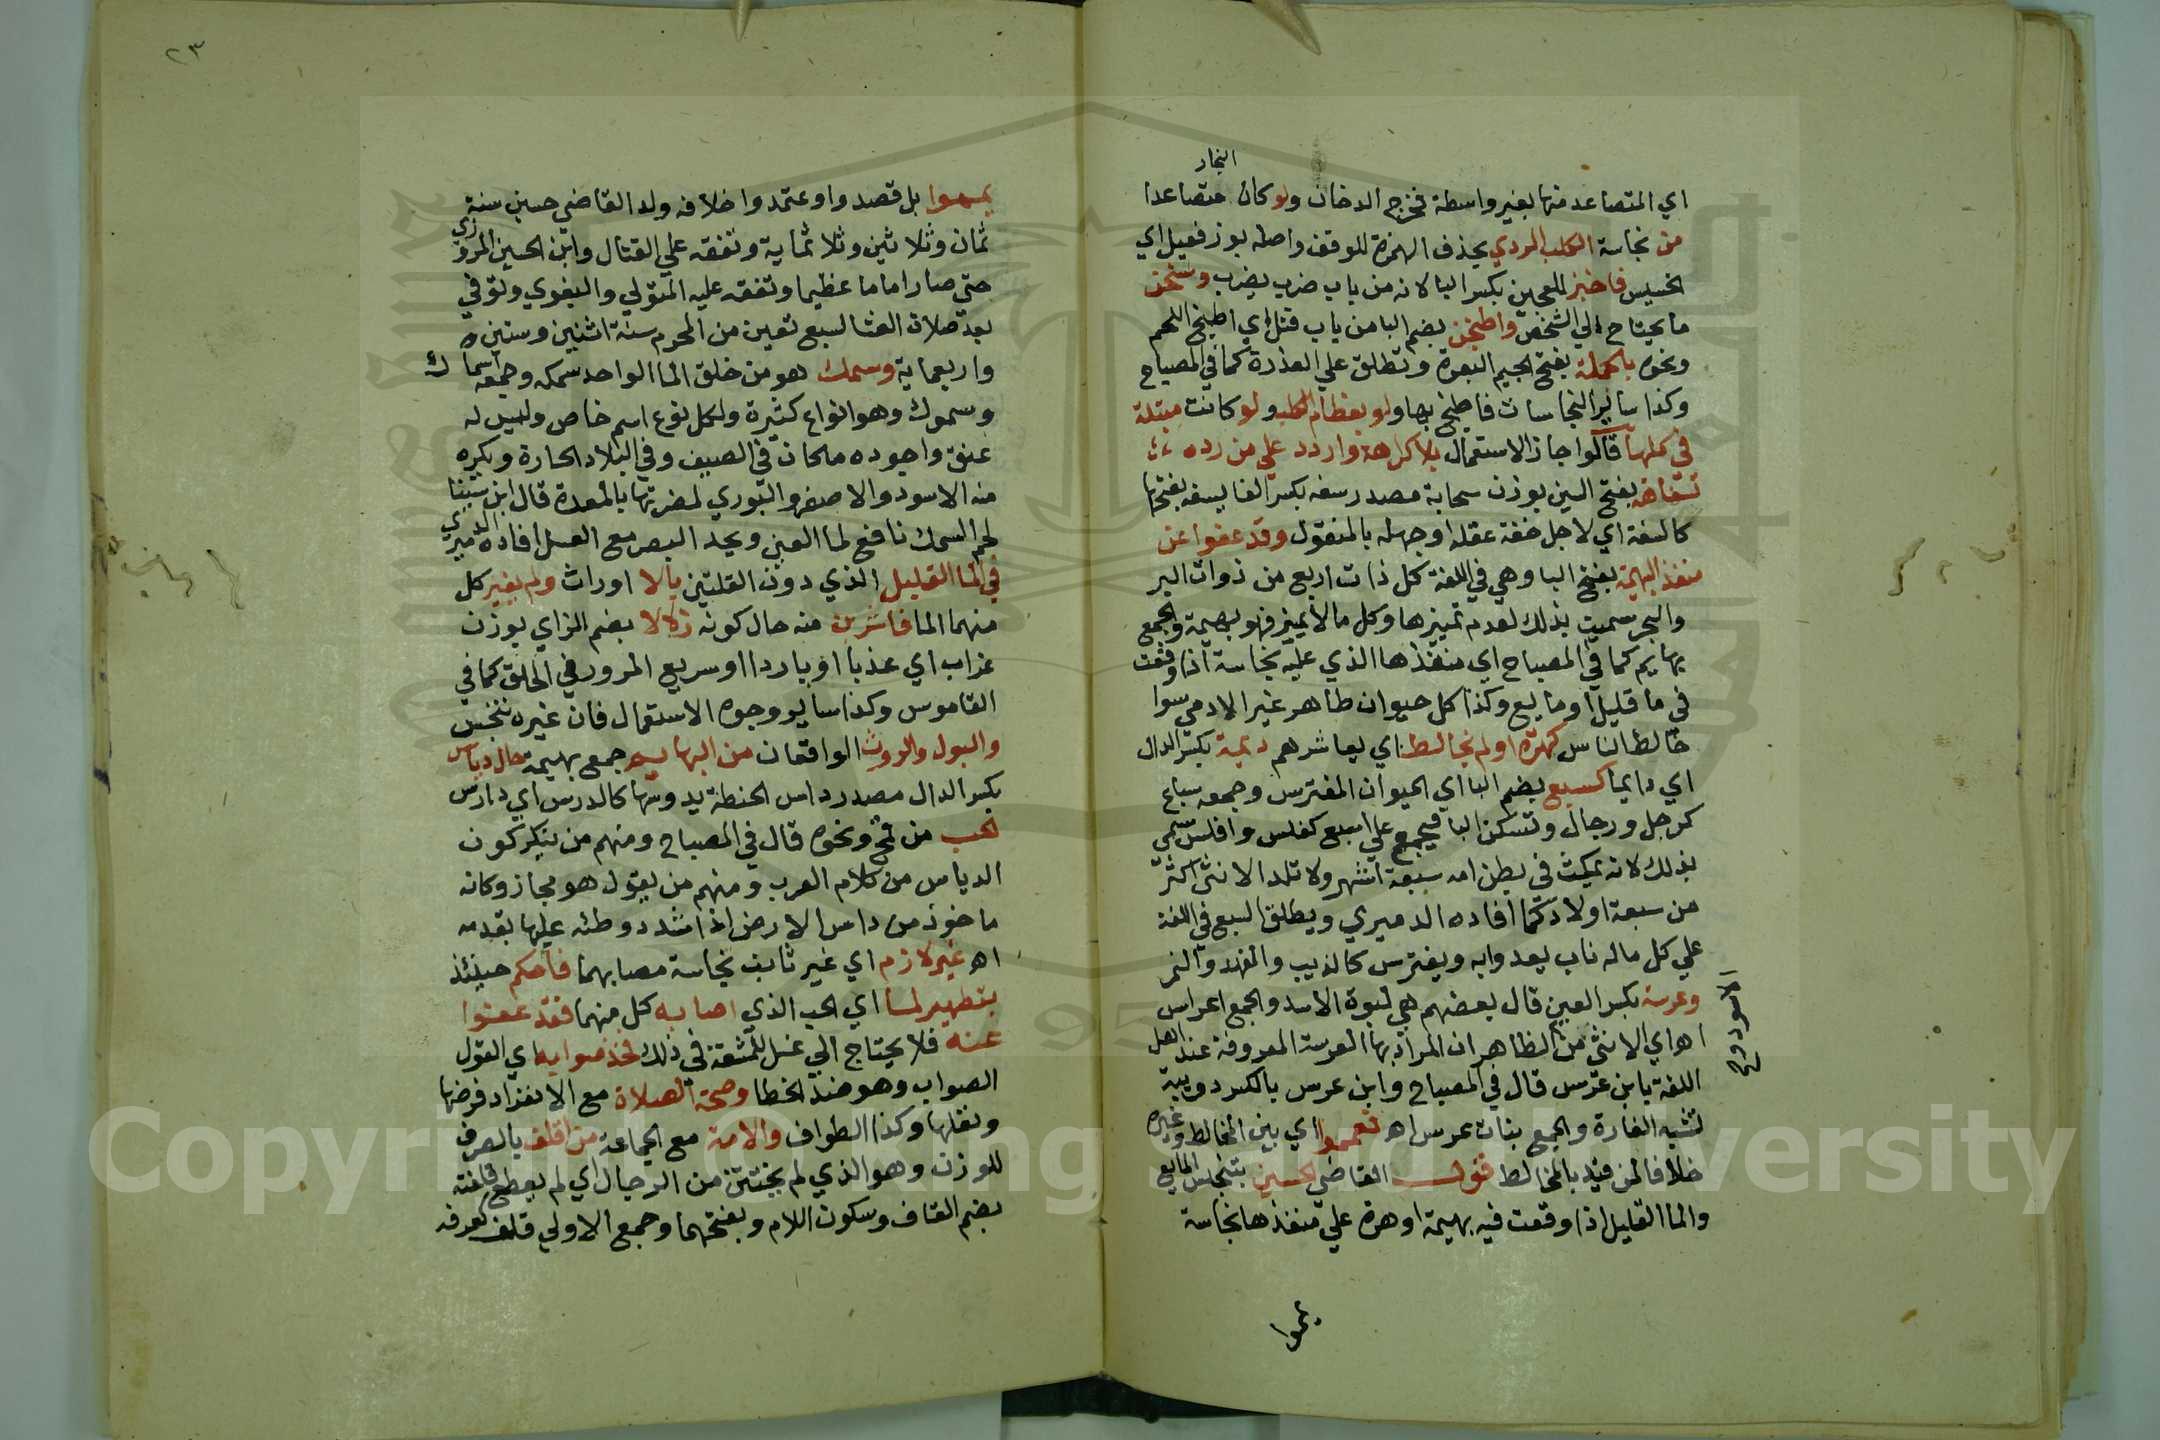 البخار
اي المتصاعد منها بغير واسطة فخرج الدخان ولو كان متصاعدا
من نجاسة الكلب الردي بحذف الهمزة للوقف واصله بوزن فعيل اي
الخسيس فاخبز للعجين بكسر البا لانه من باب ضرب يضرب وسخن
ما يحتاج الي الشخص واطبخن بضم البا من باب قتل اي اطبخ اللحم
ونحوه بالجلة بفتح الجيم البعرة وتطلق علي العذرة كما في المصباح
وكذا ساير النجاسات فاطبخ بها ولو بعظام الكلب ولو كانت مبتلة
في حملها قالوا جاز الاستعمال بلا كراهة واردد علي من رده
تسفاهة بفتح السين بوزن سحابة مصدر سفه بكسر الفا يسفه بفتحها
كالسفه اي لاجل خفة عقله او جهله بالمنقول وقد عفوا عن
منفذ البهيمة بفتح البا وهي في اللغة كل ذات اربع من ذوات البر
والبحر سميت بذلك لعدم تميزها وكل ما لا يميز فهو بهيمة والجمع
بهايم كما في المصباح اي منفذها الذي عليه نجاسة اذا وقعت
في ما قليل او مايع وكذا كل حيوان طاهر غير الادمي سوا
خالط الناس كهرة او لم يخالط اي يعاشرهم ديمة بكسر الدال
اي دايما كسبع بضم البا اي الحيوان المفترس وجمعه سباع
كرجل ورجال وتسكن البا فيجمع علي اسبع كفلس وافلس سمي
بذلك لانه يمكث في بطن امه سبعة اشهر ولا تلد الانثي اكثر
من سبعة اولاد كما افاده الدميري ويطلق السبع في اللغة
علي كل ما له ناب يعدوا به ويفترس كالذيب والفهد والنمر
وعرسة بكسر العين قال بعضهم هي لبوة الاسد والجمع اعراس
اهـ اي الانثي من الظاهر ان المراد بها العرسة المعروفة عند اهل
الاسود وفح
اللغة بابن عرس قال في المصباح وابن عرس بالكسر دويبة
تشبه الفارة والجمع بنات عرس اهـ تعمموا اي بين المخالط وغيره
خلافا لمن قيد بالمخالط قول القاضي الحسين بتنجس المايع
والما القليل اذا وقعت فيه بهيمة او هرة علي منفذها نجاسة
يمهوا
٢٣
يمهوا بل قصدوا وعتمدوا خلافه ولد القاضي حسين سنة
ثمان وثلاثين وثلاثماية وتفقه علي القتال وابن الحسين المروزي
حتي صار اماما عظيما وتفقه عليه المتولي والبغوي وتوفي
بعد صلاة العشا لسبع تعين من المحرم سنة اثنين وستين
واربعماية وسمك هو من خلق الما الواحد سمكه وجمعه اسماك
وسموك وهو انواع كثيرة ولكل نوع اسم خاص وليس له
عنق واجوده ما كان في الصيف وفي البلاد الحارة ويكره
منه الاسود والاصفر والبوري لمضرتها بالمعدة قال ابن سينا
لحم السمك نافع لما العين ويحد البصر مع العسل افاده الدميري
في الما القليل الذي دون القلتين بالا او راث ولم يغير كل
منهما الما فاشربن منه حال كونه زلالا بضم الزاي بوزن
غراب اي عذبا او باردا او سريع المرور في الحلق كما في
القاموس وكذا ساير وجوه الاستعمال فان غيره تنجس
والبول والروث الواقعان من البهايم جمع بهيمة حال دياس
بكسر الدال مصدر داس الحنطة يدوسها كالدرس اي دارس
لحب من قمح ونحوه قال في المصباح ومنهم من ينكر كون
الدياس من كلام العرب ومنهم من يقول هو مجاز وكانه
ماخوذ من داس الارض اذا شدد وطئه عليها بقدمه
اهـ غير لازم اي غير ثابت نجاسة مصابهما فاحكم حينئذ
بتطهير لما اي الحب الذي اصابه كل منهما فقد عفوا
عنه فلا يحتاج الي غسل للمشقة في ذلك فخذ صوابه اي القول
الصواب وهو ضد الخطا وصحة الصلاة مع الانفراد فرضها
ونفلها وكذا الطواف والامة مع الجماعة من اقلف بالصرف
للوزن وهو الذي لم يختتن من الرجال اي لم يعطع قلفته
بضم القاف وسكون اللام وبفتحهما وجمع الاولي قلف كغرفة
Copyright © King Saud University